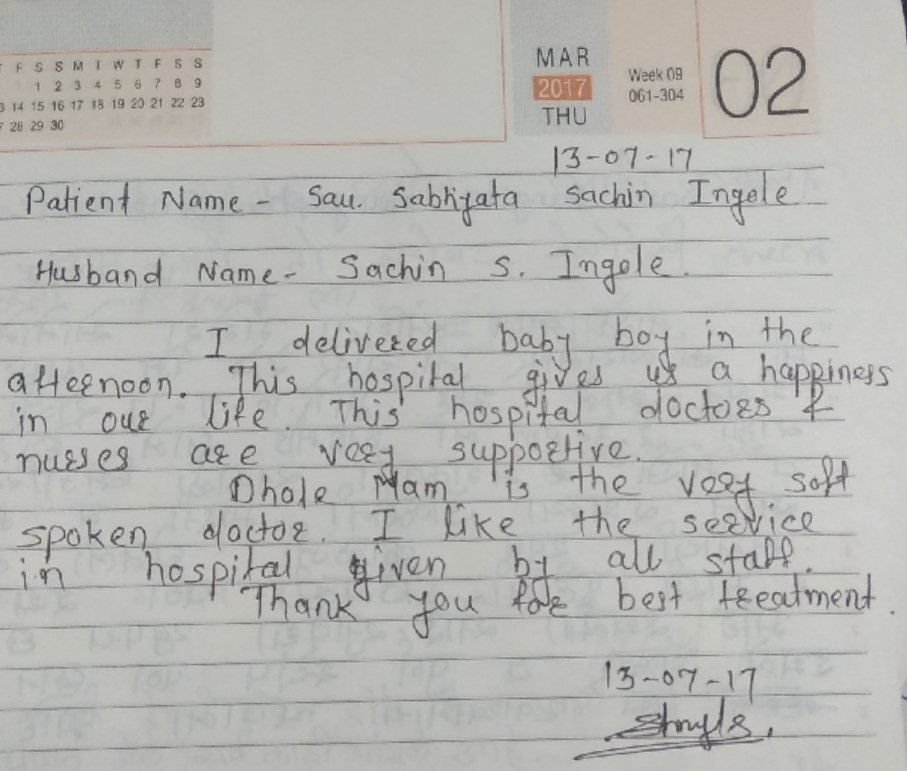 F S S M T W T F S S
1 2 3 4 5 6 7 8 9
14 15 16 17 18 19 20 21 22 23
28 29 30
MAR
2017
THU
Week 09
061-304
02
13-07-17
Patient Name - Sau. Sabhyata Sachin Ingole
Husband Name- Sachin S. Ingole.
I delivered baby boy in the
afternoon. This hospital gives us a happiness
in our life. This hospital doctors &
nurses are very supportive.
Dhole Mam is the very soft
spoken doctor. I like the service
in hospital given by all staff.
Thank you for best treatment.
13-07-17